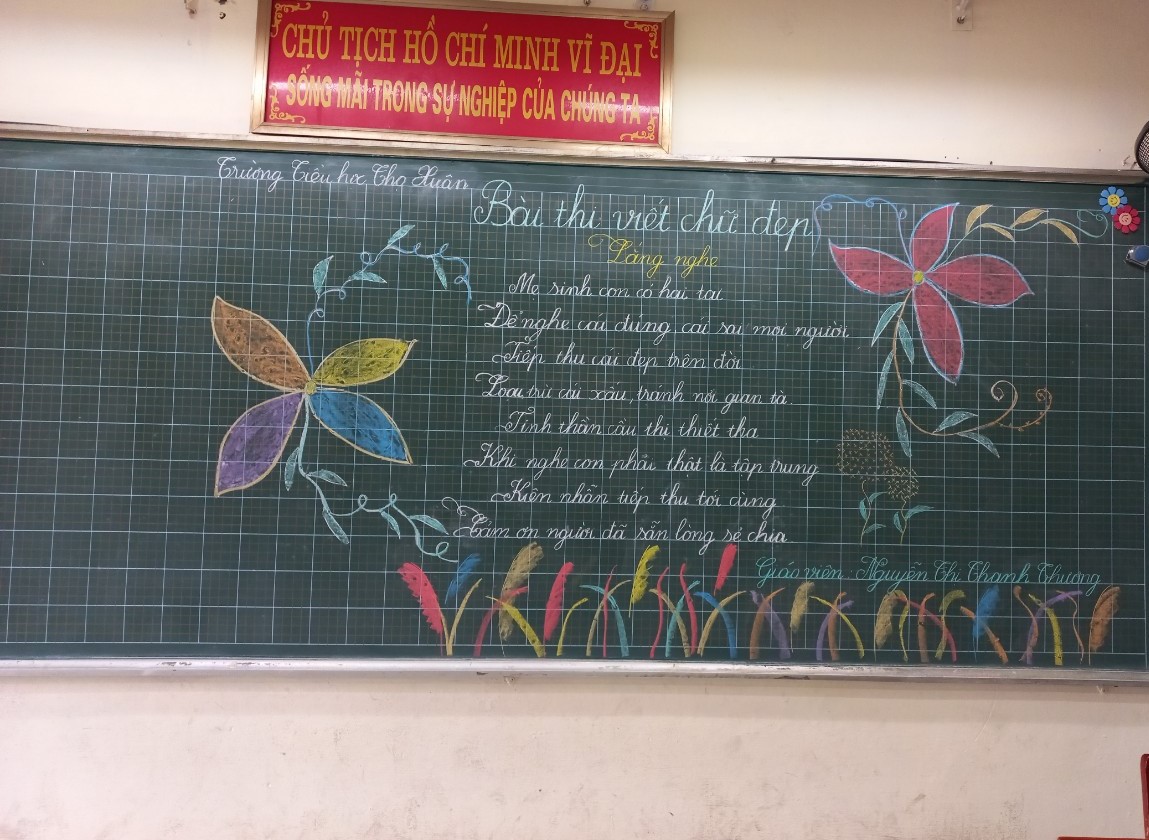 CHỦ TỊCH HỒ CHÍ MINH VĨ ĐẠI
SỐNG MÃI TRONG SỰ NGHIỆP CỦA CHÚNG TA
Trường Tiểu học Thọ Xuân
Bài thi viết chữ đẹp
Lắng nghe
Mẹ sinh con có hai tai
Để nghe cái đúng, cái sai mọi người
Tiếp thu cái đẹp trên đời
Loại trừ cái xấu, tránh nơi gian tà.
Tinh thần cầu thị thiết tha
Khi nghe con phải thật là tập trung
Kiên nhẫn tiếp thu tới cùng
Cám ơn người đã sẵn lòng sẻ chia
Giáo viên: Nguyễn Thị Thanh Thương